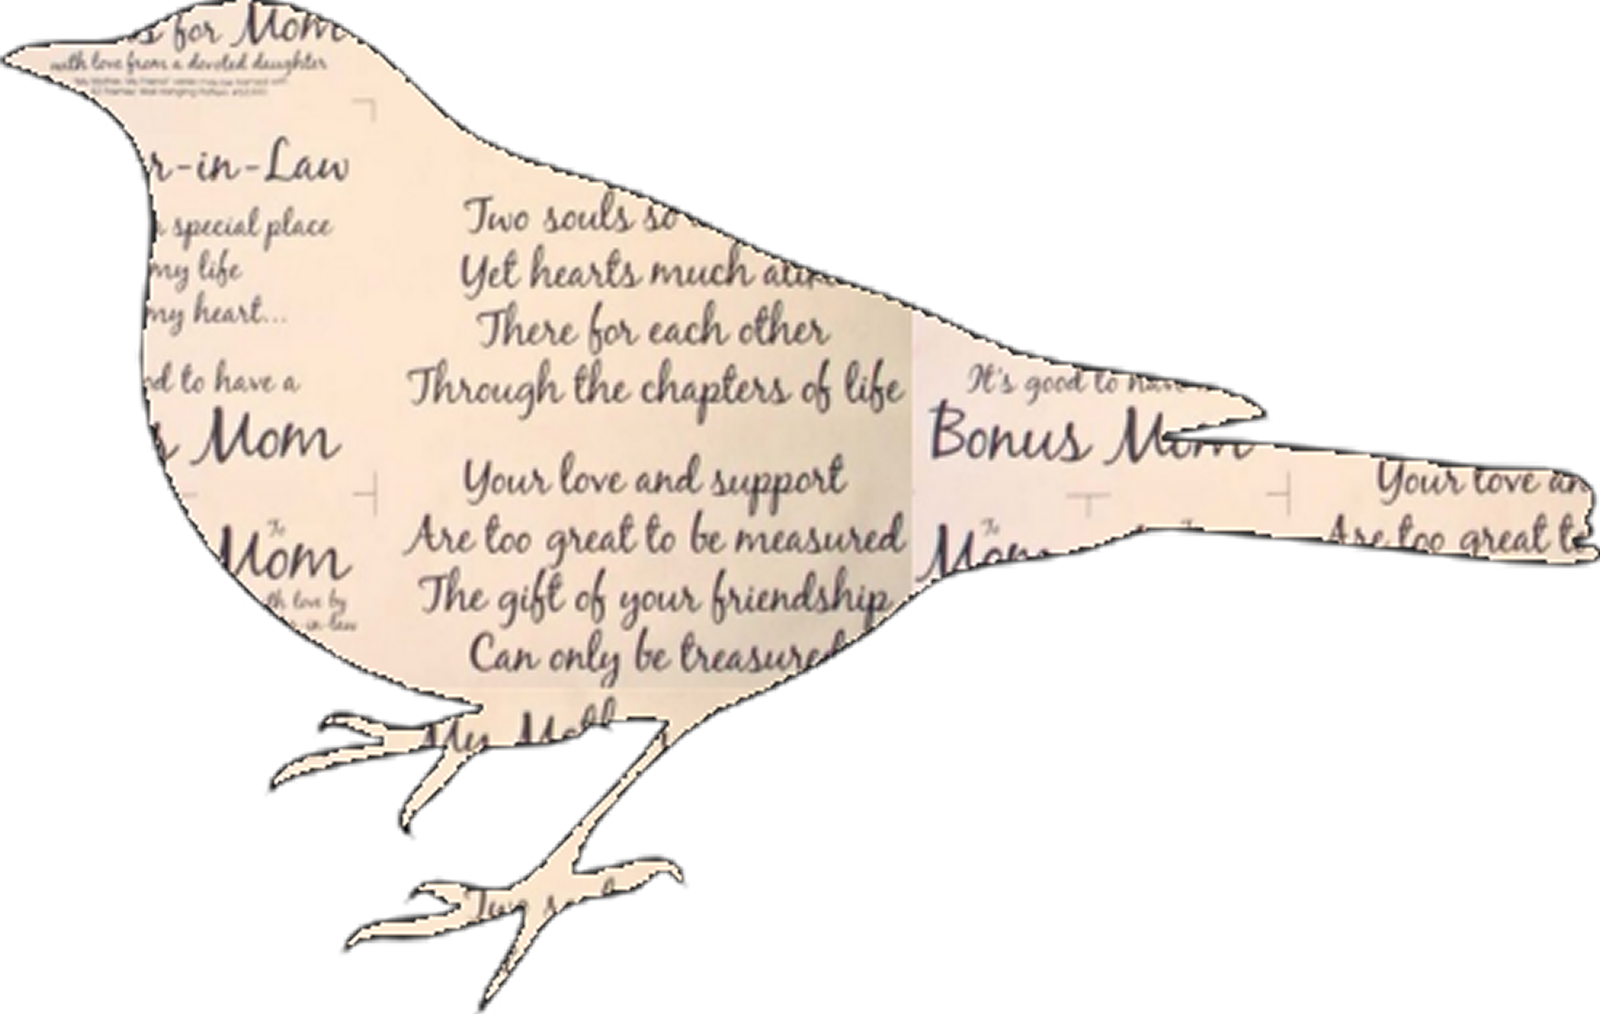 for Mom
with love from a devoted daughter
-in-Law
special place
my life
my heart...
to have a
Mom
To
Mom
love by
-in-law
Two souls so
Yet hearts much
There for each other
Through the chapters of life
Your love and support
Are too great to be measured
The gift of your friendship
Can only be treasured
My
Two s
It's good to
Bonus Mom
To
Mom
Your love an
Are too great to